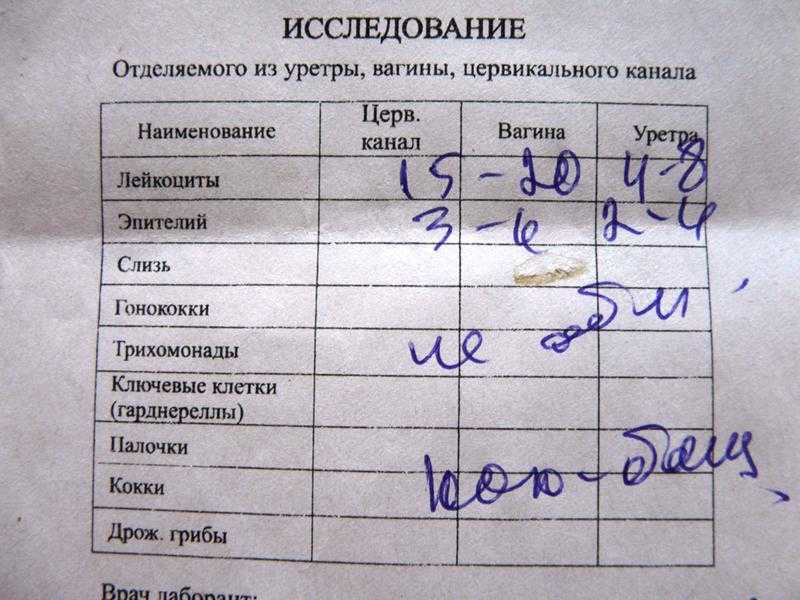 ИССЛЕДОВАНИЕ
Отделяемого из уретры, вагины, цервикального канала
Наименование Церв. канал Вагина Уретра
Лейкоциты 15 - 20 4-8
Эпителий 3 - 6 2-4
Слизь
Гонококки
Трихомонады не
Ключевые клетки
(гарднереллы)
Палочки
Кокки
Дрож. грибы
Врач лаборант: